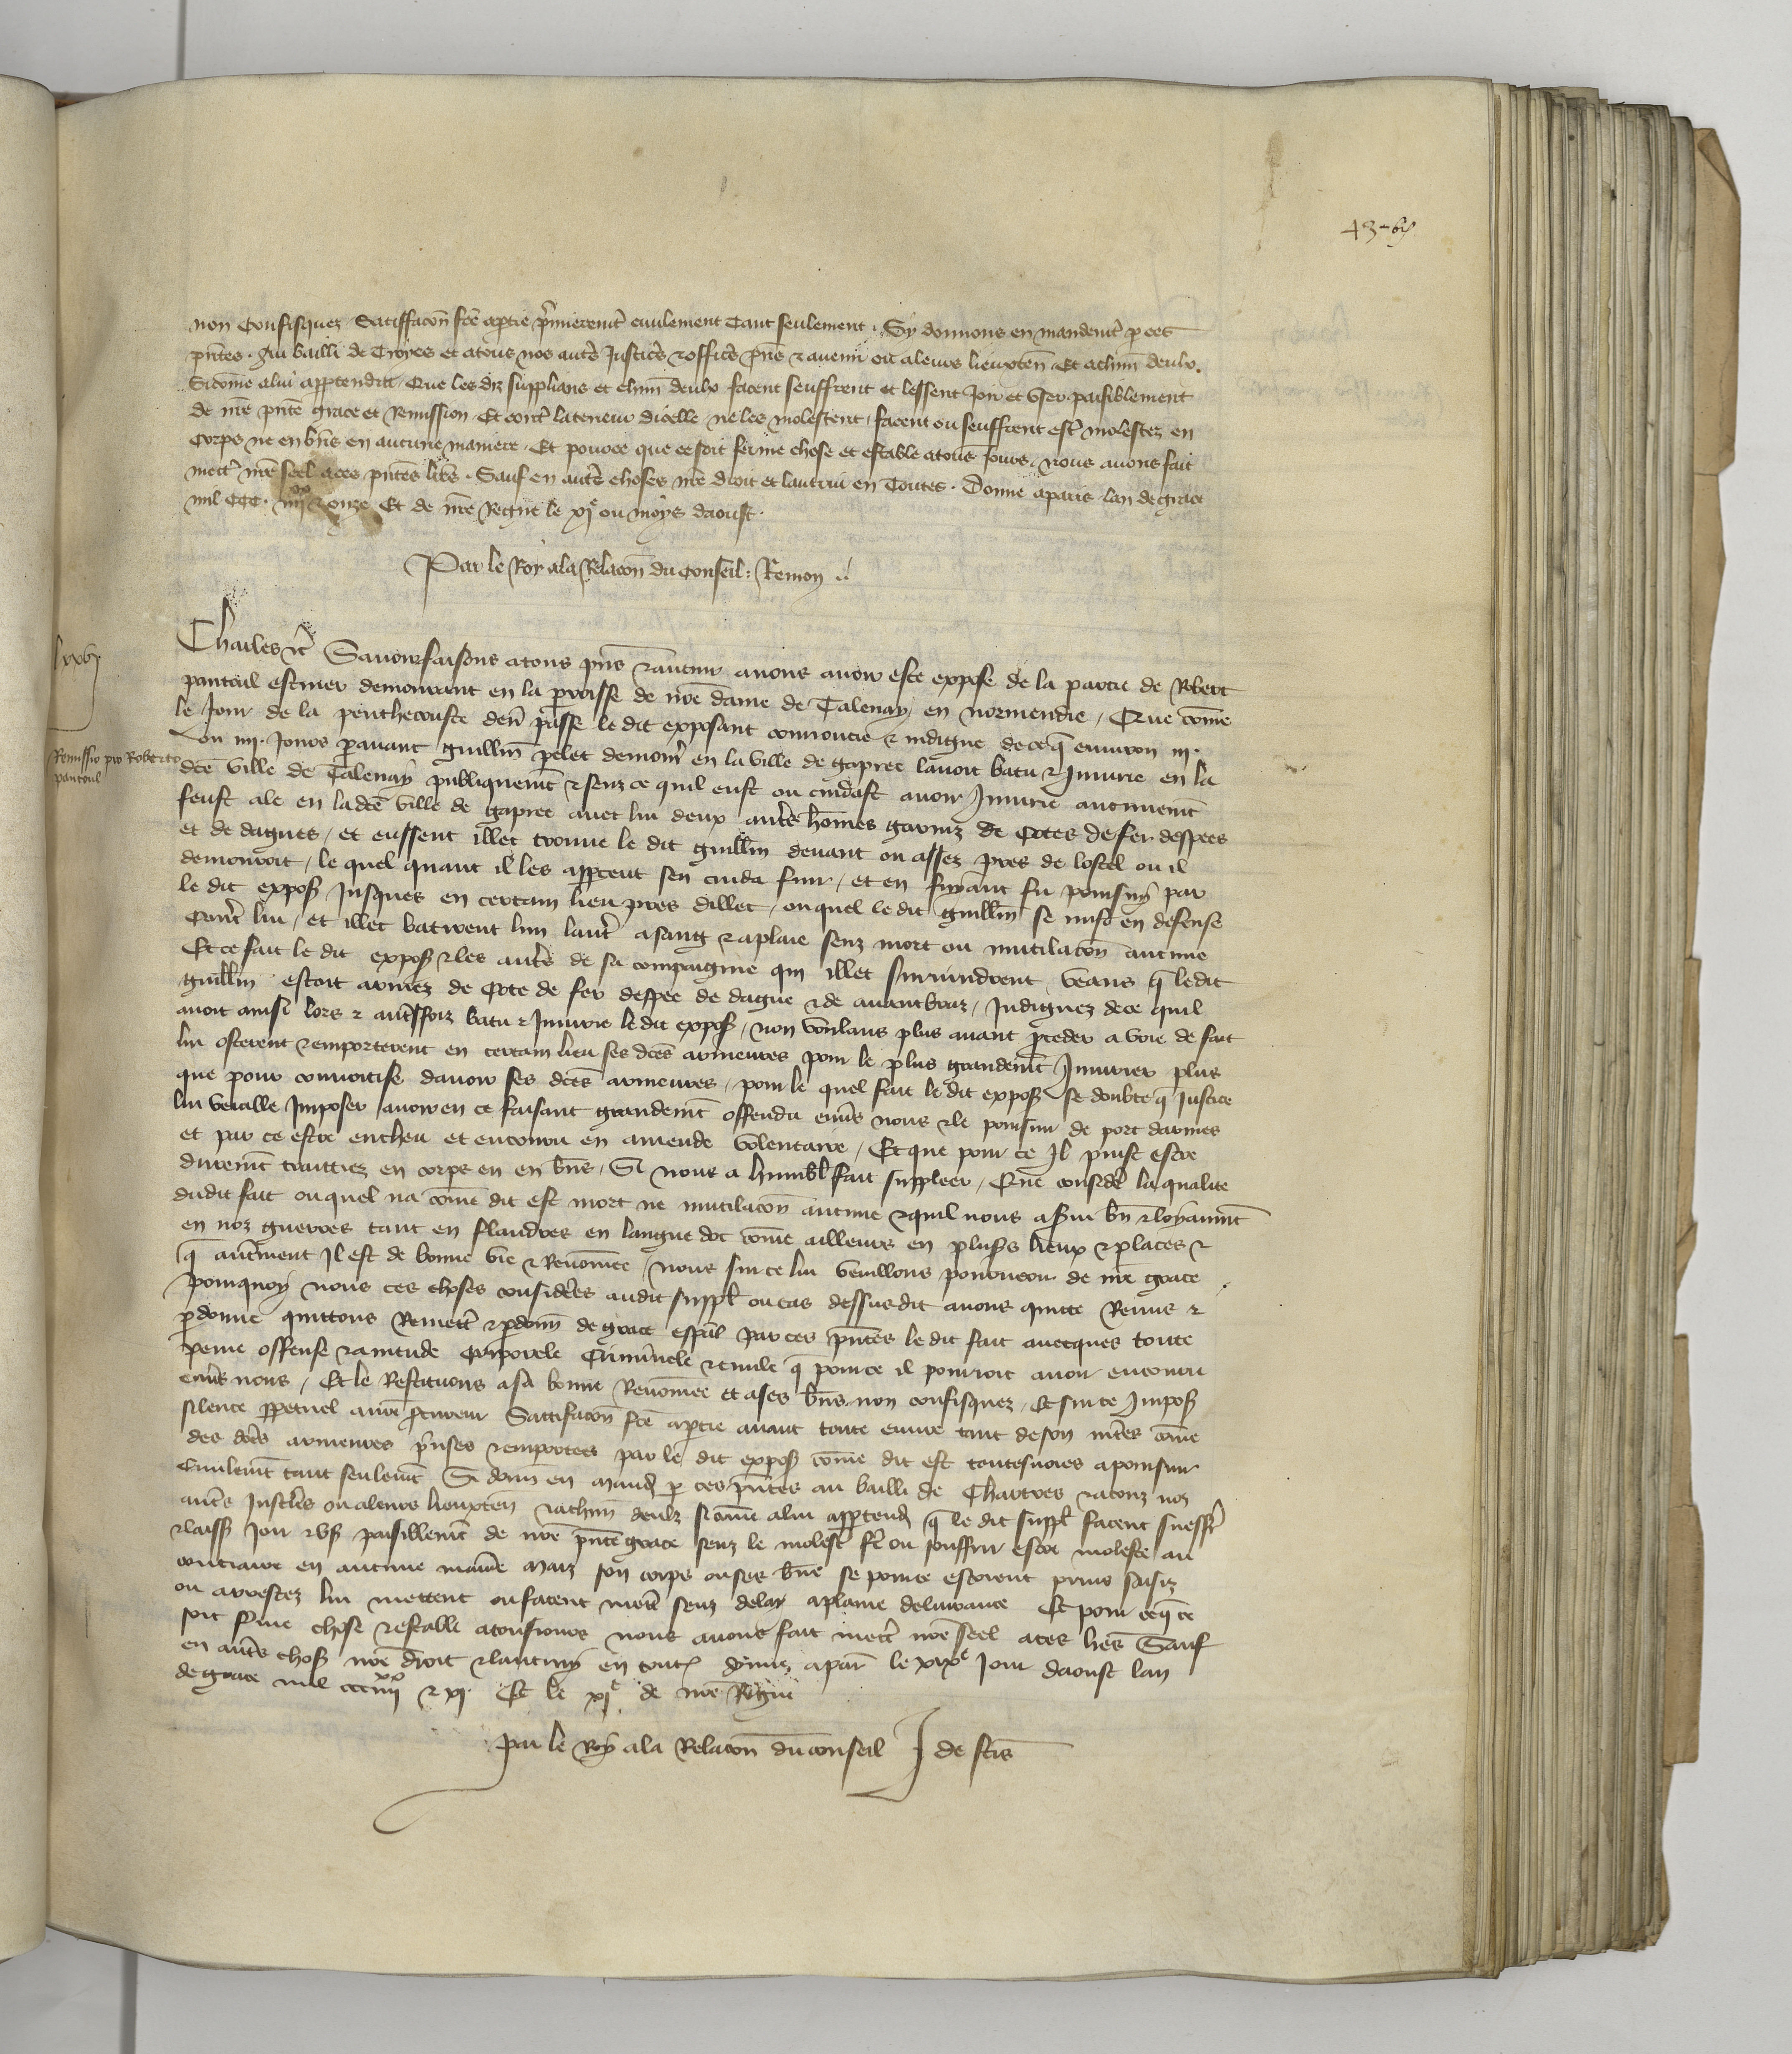 43-bis
non confisquez Satiffacon fce a ptie p̃mierem̃t ciuilement tant seulement. Sy donnons en mandem̃t p ces
pñtes. au bailli de Troyes et a tous nos aut̃s Justic̃s & offic̃s p̃ns & auenir ou a leurs lieuxten̄ Et a chūn deulx.
Si cōme a lui apptendra. Que les diz supplians et chūn deulx facent seuffrent et lessent Joir et vser paisiblement
de nr̃e pñte grace et Remission Et contr̃ la teneur dicelle ne les molestent, facent ou seuffrent estr̃ molestez en
corps ne en bñs en aucune maniere. Et pource que ce soit ferme chose et estable a tous Jours. nous auons fait
mettr̃ nr̃e seel a ces pñtes lr̃es. Sauf en autr̃s choses nr̃e droit et lautrui en Toutes. Donne a paris lan de grace
mil CCC. iiij xx & onze Et de nr̃e Regne le xj e ou moys daoust.
Par le Roy a la Relacon du Conseil: Remon
Charles &c Sauoir faisons a tous pñs & auenir a nous auoir este expose de la partie de Robert
lxxvj.
pantoul escuier demourant en la p̃roisse de nr̃e dame de Talenay, en normendie, Que cōme
le Jour de la penthecouste den̄ passe le dit exposant courroucie & indigne de ce q̃ enuiron iij.
ou iiij. Jours p̃auant guillm̄ pelet demour̃ en la ville de gapree lauoit batu & Jniurie en la
Remissio pro Roberto
pantoul
dc̃e ville de Talenay publiquem̃t & senz ce quil eust ou cuidast auoir Jniurie aucunem̃t
feust ale en ladc̃e ville de gapree auec lui deux autr̃s hōmes garniz de Cotes de fer despees
et de dagues, et eussent illec trouue le dit guillm̄ deuant ou assez pres de lostel ou il
demouroit, le quel quant il les appceut sen cuida fuir, et en fuyant fu poursuy par
le dit expos̃ Jusques en certain lieu pres dillec, ou quel le dit guillm̄ se mist en defense
contr̃ lui, et illec batirent lun lautr̃ a sang & a plaie senz mort ou mutilacon aucune
Et ce fait le dit expos̃ & les autr̃s de sa compaignie qui illec suruindrent veans q̃ ledit
guillm̄ estoit armez de Cote de fer despee de dague & de auantbraz, Indignez de ce quil
auoit ainsi lors & autresfoiz batu & Jniurie le dit expos̃, non voulans plus auant p̃ceder a voie de fait
lui osterent & emporterent en certain lieu ses dc̃es armeures pour le plus grandem̃t Jniurier plus
que pour conuoitise dauoir ses dc̃es armeures, pour le quel fait le dit expos̃ se doubte q̃ Justice
lui vueille Imposer auoir en ce faisant grandem̃t offendu enũs nous & le poursuir de port darmes
et par ce estre encheu et encouru en amende voluntaire, Et que pour ce Jl puist estre
durem̃t traittiez en corps ou en bñs, Si nous a humbl̃ fait supplier, Que consider̃ la qualite
dudit fait ou quel na cōme dit est mort ne mutilacon aucune & quil nous a s̃ui bn̄ & loyaum̃t
en noz guerres tant en flandres en langue doc cōme ailleurs en plus̃s lieux & places &
q̃ autr̃ment Jl est de bonne vie & Renōmee, nous sur ce lui vueillons pourueoir de nr̃e grace.
pourquoy nous ces choses consider̃es audit suppl̃ ou cas dessusdit auons quitte Remis &
p̃donne quittons Remett̃ & p̃donn̄ de grace esp̃al par ces pñtes le dit fait auecques toute
peine offense & amende Corporele Criminele & ciuile q̃ pour ce il pourroit auoir encouru
enũs nous, Et le Restituons a sa bonne Renōmee et a ses bñs non confisquez, Et sur ce Impos̃
silence ppetuel a nr̃e p̃cureur Sattifacon fce a ptie auant toute euure tant de son int̃es cōme
des dc̃es armeures p̃nses & emportees par le dit expos̃ cōme dit est toutesuoies a poursuir
Ciuilem̃t tant seulem̃t Si donn̄ en mand̃ p ces pñtes au bailli de Chartres & a touz noz
autr̃s Justic̃rs ou a leurs lieuxten̄ & a chūn deulx si cōme a lui apptend̃ q̃ le dit suppl̃ facent sueffr̃
& laiss̃ Joir & vs̃ paisiblem̃t de nr̃e pñte grace senz le molest̃ fr̃e ou souffrir estre moleste au
contraire en aucune manier̃e maiz son corps ou ses bñs se pour ce estoient prins saisiz
ou arrestez lui mettent ou facent mettr̃ senz delay a plaine deliurance Et pour ce q̃ ce
soit ferme chose & establi a tousiours nous auons fait mettr̃ nr̃e seel a ces lr̃es Sauf
en autr̃s chos̃ nr̃e droit & lautruy en tout̃ donne a par̃ le xix e Jour daoust lan
de grace mil ccciiij xx & xj Et le xj e de nr̃e Regne
par le Roy a la Relacon du conseil J de sc̃is